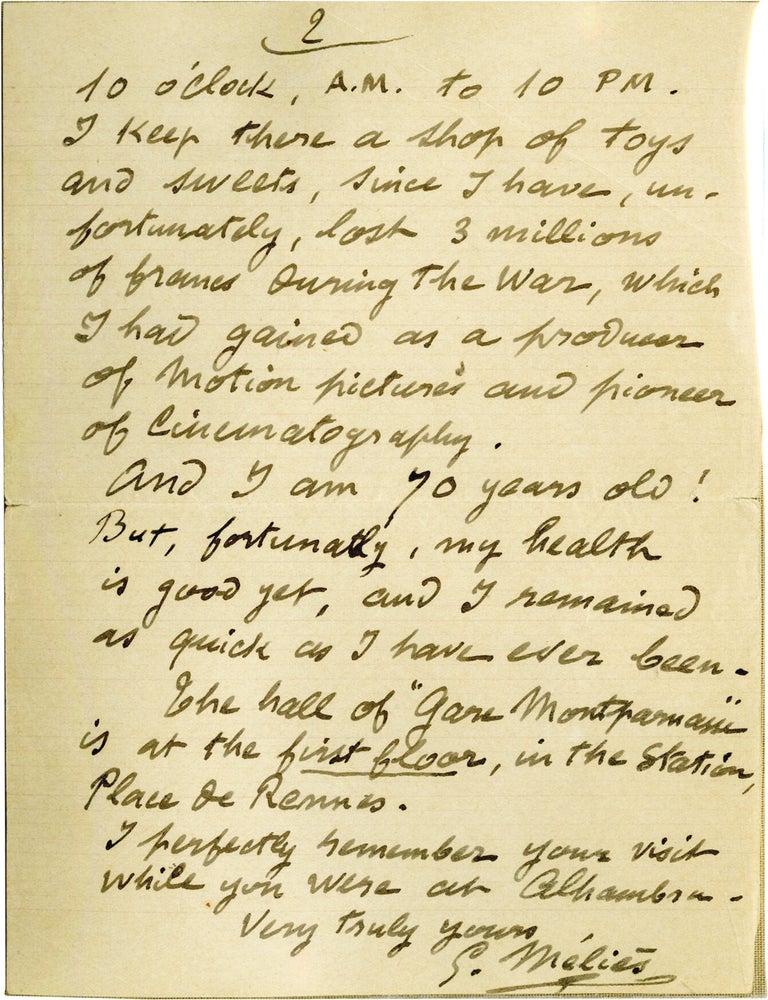 2
10 o'clock, A.M. to 10 PM.
I Keep there a shop of toys
and sweets, since I have, un-
fortunately, lost 3 millions
of francs during the War, which
I had gained as a producer
of Motion pictures and pioneer
of Cinematography.
And I am 70 years old!
But, fortunatly, my health
is good yet, and I remained
as quick as I have ever been-
The hall of "Gare Montparnasse"
is at the first floor, in the Station,
Place de Rennes.
I perfectly remember your visit
while you were at Alhambra-
Very truly yours,
G. Méliès